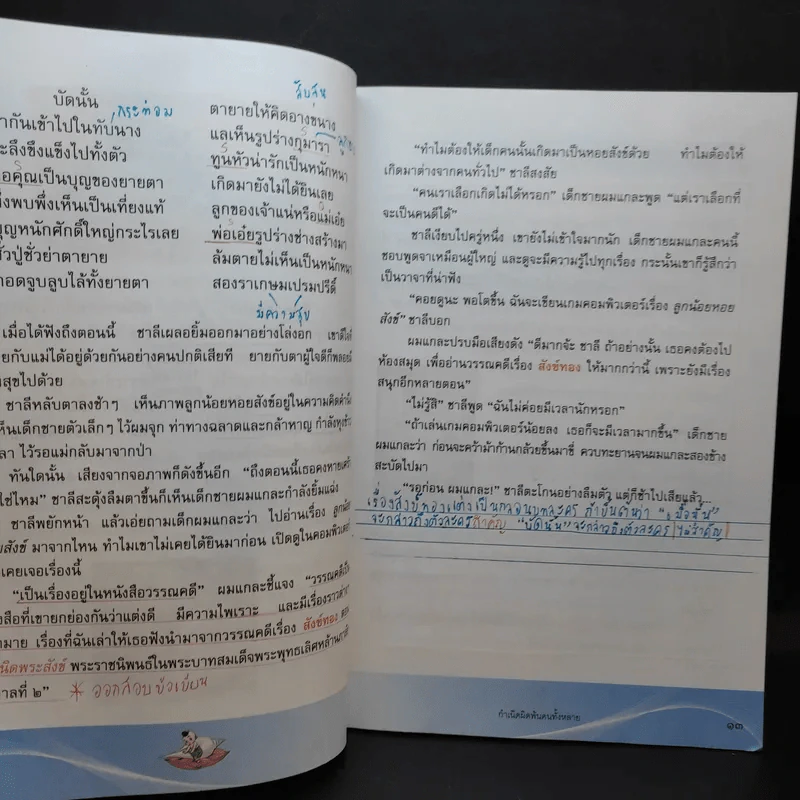 บัดนั้น
กระท่อม
ากันเข้าไปในทับนาง
ะลึงขึงแข็งไปทั้งตัว
อคุณเป็นบุญของยายตา
พบพึ่งเห็นเป็นเที่ยงแท้
ญหนักศักดิ์ใหญ่กระไรเลย
ัวปู่ชั่วย่าตายาย
อดจูบลูบไล้ทั้งยายตา
สับสน
ตายายให้คิดอางขนาง
แลเห็นรูปร่างกุมารา
ทูนหัวน่ารักเป็นหนักหนา
เกิดมายังไม่ได้ยินเลย
ลูกของเจ้าแน่หรือแม่เอ๋ย
พ่อเอ๋ยรูปร่างช่างสร้างมา
ล้มตายไม่เห็นเป็นหนักหนา
สองราเกษมเปรมปรีดิ์
มีความสุข
เมื่อได้ฟังถึงตอนนี้ ชาลีเผลอยิ้มออกมาอย่างโล่งอก เขาดีใจ
ยกับแม่ได้อยู่ด้วยกันอย่างคนปกติเสียที ยายกับตาผู้ใจดีก็พลอย
สุขไปด้วย
ชาลีหลับตาลงช้าๆ เห็นภาพลูกน้อยหอยสังข์อยู่ในความคิดคำนึง
ห็นเด็กชายตัวเล็กๆ ไว้ผมจุก ท่าทางฉลาดและกล้าหาญ กำลังหุงข้าว
ลา ไว้รอแม่กลับมาจากป่า
ทันใดนั้น เสียงจากจอภาพก็ดังขึ้นอีก “ถึงตอนนี้เธอคงหายเศร้า
ใช่ไหม” ชาลีสะดุ้งลืมตาขึ้นก็เห็นเด็กชายผมแกละกำลังยิ้มแฉ่ง
ชาลีพยักหน้า แล้วเอ่ยถามเด็กผมแกละว่า ไปอ่านเรื่อง ลูกน้อย
ยสังข์ มาจากไหน ทำไมเขาไม่เคยได้ยินมาก่อน เปิดดูในคอมพิวเตอร์
เคยเจอเรื่องนี้
“เป็นเรื่องอยู่ในหนังสือวรรณคดี” ผมแกละชี้แจง “วรรณคดีเป็น
งสือที่เขายกย่องกันว่าแต่งดี มีความไพเราะ และมีเรื่องราวต่างๆ
มาย เรื่องที่ฉันเล่าให้เธอฟังนำมาจากวรรณคดีเรื่อง สังข์ทอง ตอน
นิดพระสังข์ พระราชนิพนธ์ในพระบาทสมเด็จพระพุทธเลิศหล้านภาลัย
าลที่ ๒”
* ออกสอบ ข้อเขียน
“ทำไมต้องให้เด็กคนนั้นเกิดมาเป็นหอยสังข์ด้วย ทำไมต้องให้
เกิดมาต่างจากคนทั่วไป” ชาลีสงสัย
“คนเราเลือกเกิดไม่ได้หรอก” เด็กชายผมแกละพูด “แต่เราเลือกที่
จะเป็นคนดีได้”
ชาลีเงียบไปครู่หนึ่ง เขายังไม่เข้าใจมากนัก เด็กชายผมแกละคนนี้
ชอบพูดจาเหมือนผู้ใหญ่ และดูจะมีความรู้ไปทุกเรื่อง กระนั้นเขาก็รู้สึกว่า
เป็นวาจาที่น่าฟัง
“คอยดูนะ พอโตขึ้น ฉันจะเขียนเกมคอมพิวเตอร์เรื่อง ลูกน้อยหอย
สังข์” ชาลีบอก
ผมแกละปรบมือเสียงดัง “ดีมากจ้ะ ชาลี ถ้าอย่างนั้น เธอคงต้องไป
ห้องสมุด เพื่ออ่านวรรณคดีเรื่อง สังข์ทอง ให้มากกว่านี้ เพราะยังมีเรื่อง
สนุกอีกหลายตอน”
“ไม่รู้สิ” ชาลีพูด “ฉันไม่ค่อยมีเวลานักหรอก”
“ถ้าเล่นเกมคอมพิวเตอร์น้อยลง เธอก็จะมีเวลามากขึ้น” เด็กชาย
ผมแกละว่า ก่อนจะคว้าม้าก้านกล้วยขึ้นมาขี่ ควบทะยานจนผมแกละสองข้าง
สะบัดไปมา
“รอก่อน ผมแกละ!” ชาลีตะโกนอย่างลืมตัว แต่ก็ช้าไปเสียแล้ว...
เรื่องสังข์ทองแต่งเป็นกลอนบทละคร คำขึ้นต้นว่า “เมื่อนั้น”
จะกล่าวถึงตัวละครสำคัญ “บัดนั้น” จะกล่าวถึงตัวละคร ไม่สำคัญ
กำเนิดผิดพ้นคนทั้งหลาย
๑๓